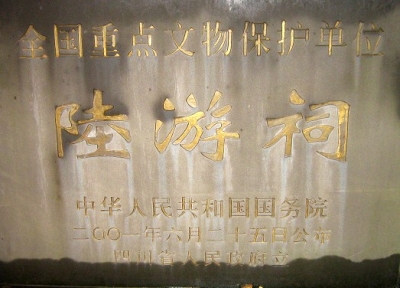 全国重点文物保护单位
陸游祠
中华人民共和国国务院
二〇〇一年六月二十五日公布
四川省人民政府立